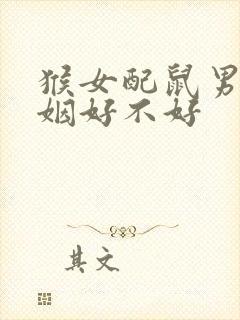 猴女配鼠男
姻好不好
其文